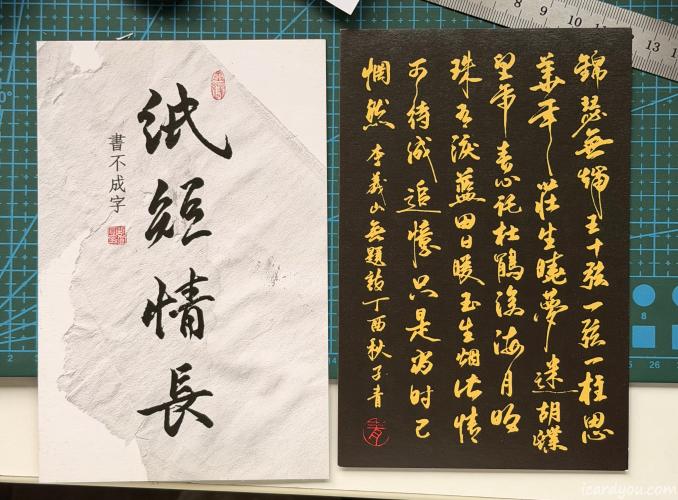 紙短情長
書不成字
錦瑟無端五十弦一弦一柱思
華年莊生曉夢迷胡蝶
望帝春心託杜鵑滄海月明
珠有淚藍田日暖玉生烟此情
可待成追憶只是當時已
惘然 李義山無題詩丁酉秋子青
8 9 10 11 12 13
icardyou.com